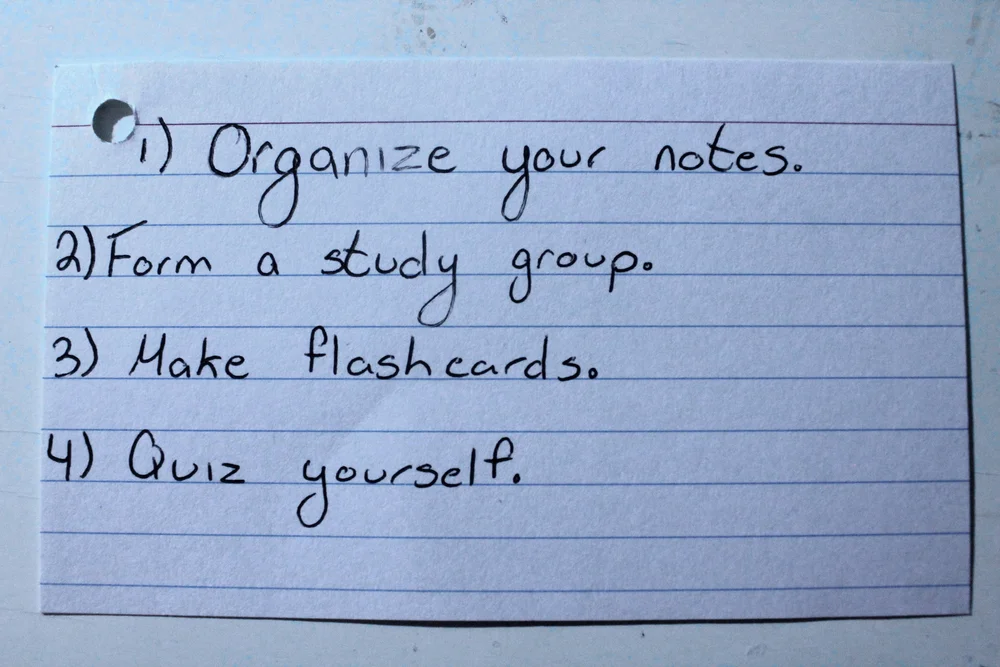 1) Organize your notes.
2) Form a study group.
3) Make flashcards.
4) Quiz yourself.